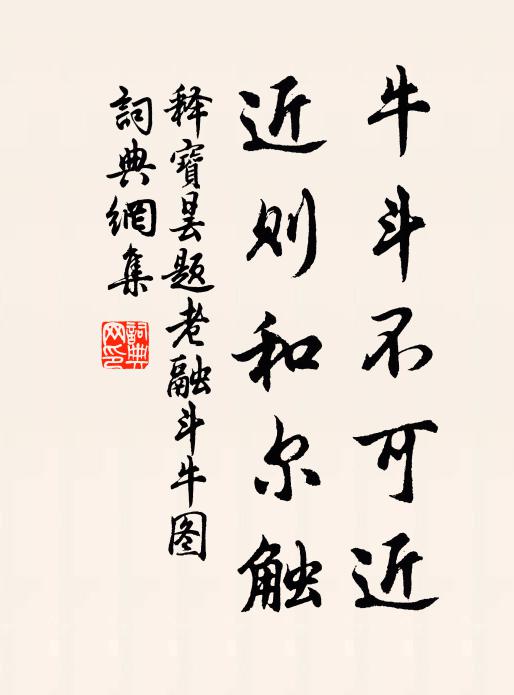 牛斗不可近
近则和尔触
释寶昙题老融斗牛图
詞典網集
詞典网印